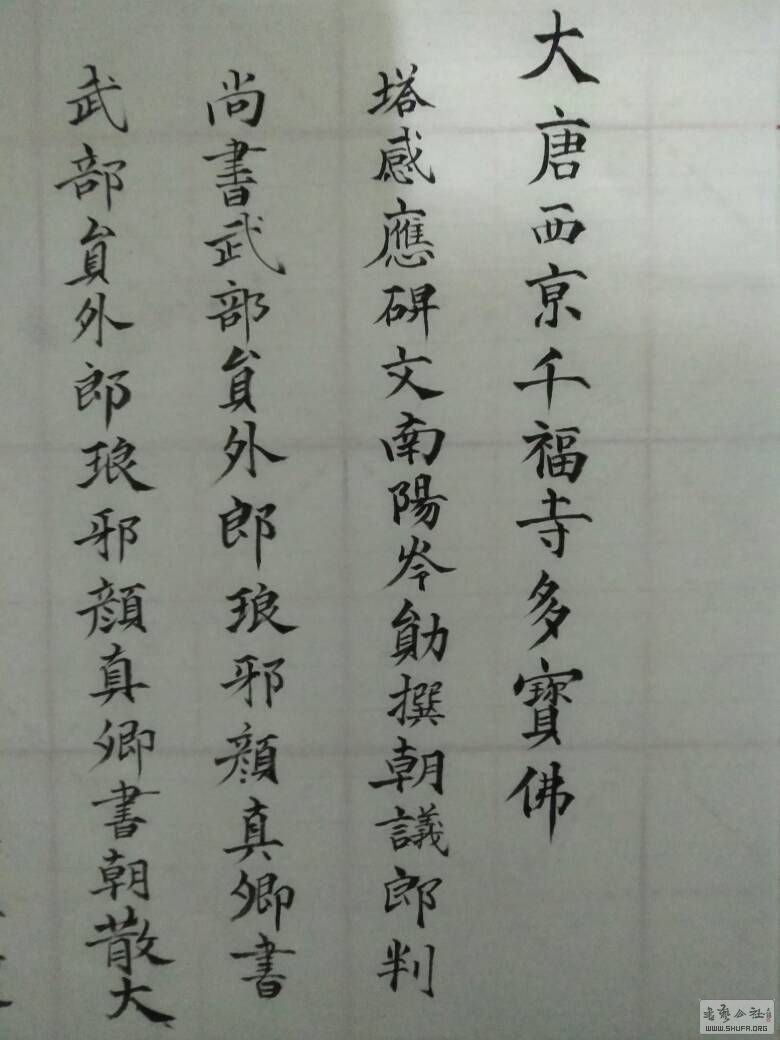 大唐西京千福寺多寶佛
塔感應碑文南陽岑勛撰朝議郎判
尚書武部員外郎琅邪顏真卿書
武部員外郎琅邪顏真卿書朝散大
書藝公社
WWW.SHUFA.ORG